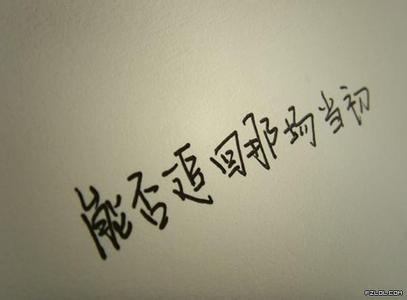 能否追回那场当初
FZLOL.COM